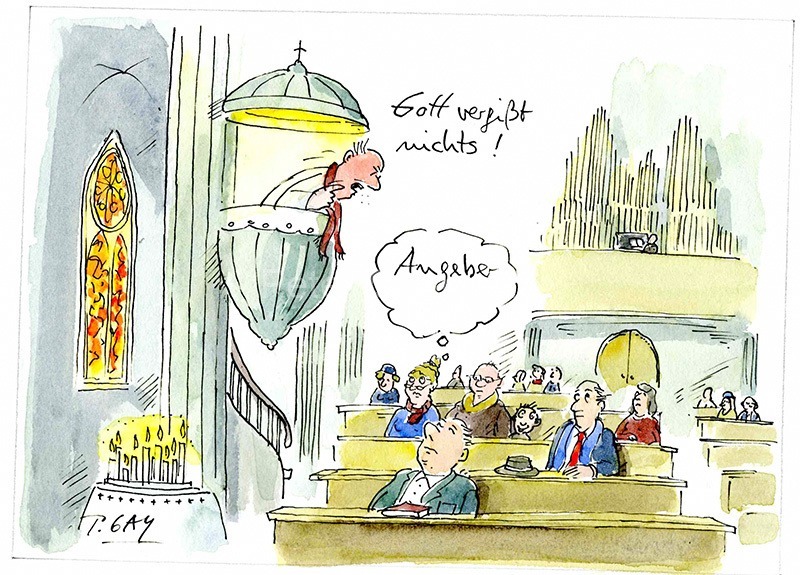 Gott vergißt
nichts !
Angeber
P. GAY